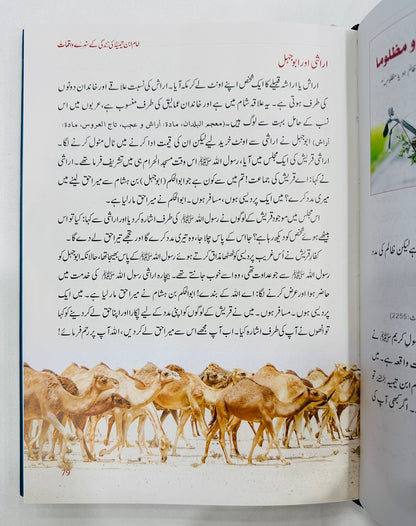 امام ابن تیمیہؒ کی زندگی کے سنہرے واقعات
اراشی اور ابوجہل
اراش یا اراشہ قبیلے کا ایک شخص اپنے اونٹ لے کر مکہ آیا۔ اراش کی نسبت علاقے اور خاندان دونوں
کی طرف ہوتی ہے۔ یہ علاقہ شام میں ہے اور خاندان عمالیق کی طرف منسوب ہے، عربوں میں اس
نسب کے حامل بہت سے لوگ ہیں۔ (معجم البلدان، مادۃ: أراش و عجب، تاج العروس، مادۃ:
أراش) ابوجہل نے اراشی سے اونٹ خرید لیے لیکن ان کی قیمت ادا کرنے میں ٹال مٹول کرنے لگا۔
اراشی قریش کی ایک مجلس میں آیا، رسول اللہ ﷺ اس وقت مسجد الحرام ہی میں تشریف فرما تھے۔ اراشی
نے کہا: اے قریش کی جماعت! تم میں سے کون ہے جو ابوالحکم (ابوجہل) بن ہشام سے میرا حق لینے میں
میری مدد کرے؟ میں ایک پردیسی ہوں، مسافر ہوں۔ ابوالحکم نے میرا حق مار لیا ہے۔
اس مجلس میں موجود قریش کے لوگوں نے رسول اللہ ﷺ کی طرف اشارہ کر دیا اور اراشی سے کہا: کیا تو اس
بیٹھے ہوئے شخص کو دیکھ رہا ہے؟ جا اس کے پاس چلا جا، وہ تیری مدد کرے گا اور تجھے تیرا حق لے دے گا۔
کفار قریش نے اُس غریب پردیسی کو بطور ٹھٹھا مذاق کرتے ہوئے آپ ﷺ کے پاس بھیجا تھا، حالانکہ ابوجہل کو
رسول اللہ ﷺ سے جو عداوت تھی، وہ اسے خوب جانتے تھے۔ وہ بیچارہ اراشی رسول اللہ ﷺ کی خدمت میں
حاضر ہوا اور عرض کرنے لگا: اے اللہ کے بندے! ابوالحکم بن ہشام نے میرا حق مار لیا ہے۔ میں ایک
پردیسی ہوں، مسافر ہوں۔ میں نے قریش کے لوگوں کو اپنی مدد کے لیے پکارا اور اپنا حق لے کر دینے کو کہا
تو انھوں نے آپ کی طرف اشارہ کیا۔ اب آپ مجھے اس سے میرا حق لے کر دیں، اللہ آپ پر رحم فرمائے!
79
و مظلوما
ہے لیکن ظالم کی مدد
(2255: